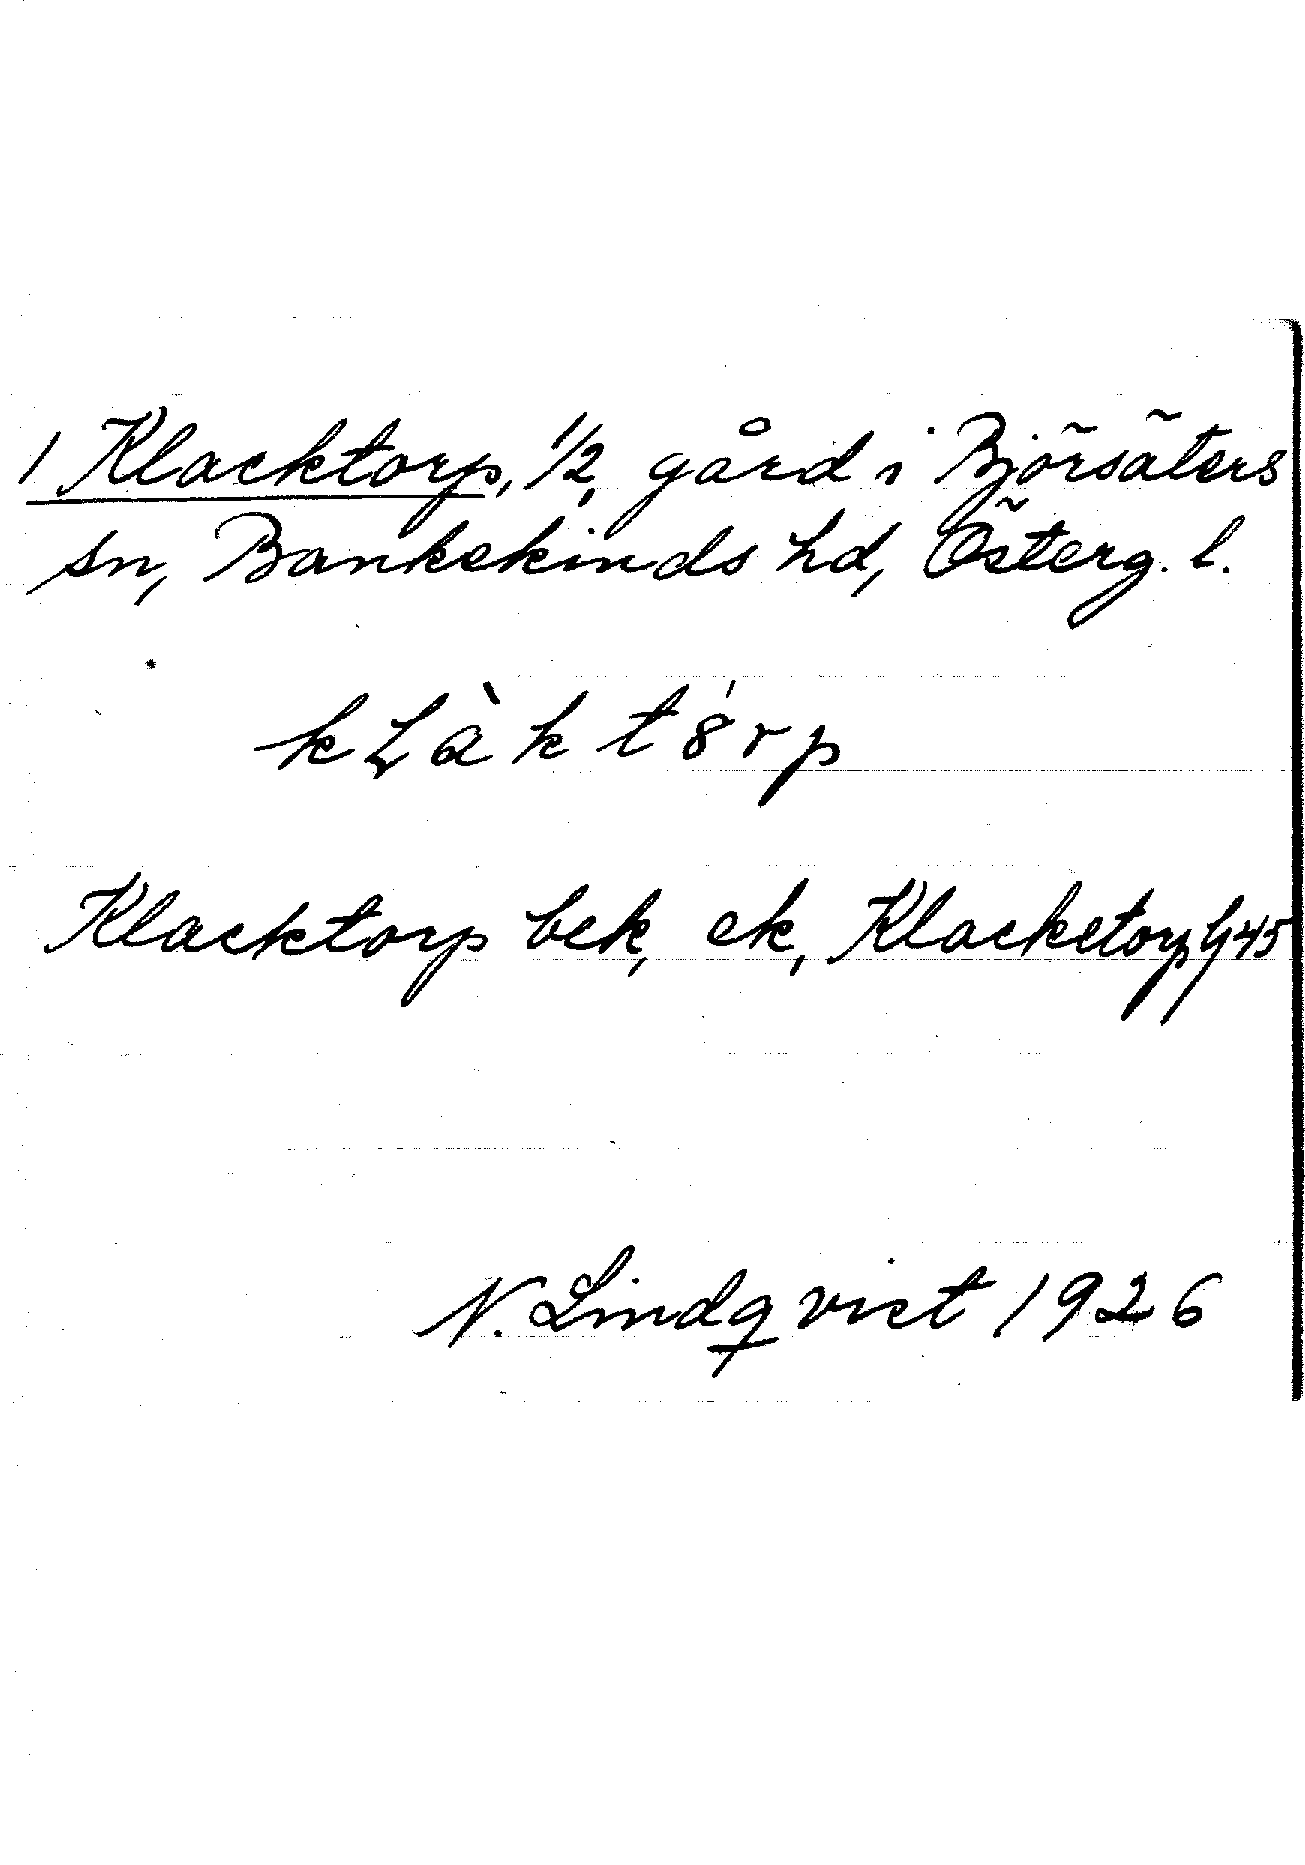 1 Klacktorp, 1/2, gård i Björsäters
sn, Bankekinds hd, Österg. l.
kLàkt8́rp
Klacktorp bek, ek, Klacketorp Gj45
N. Lindqvist 1926